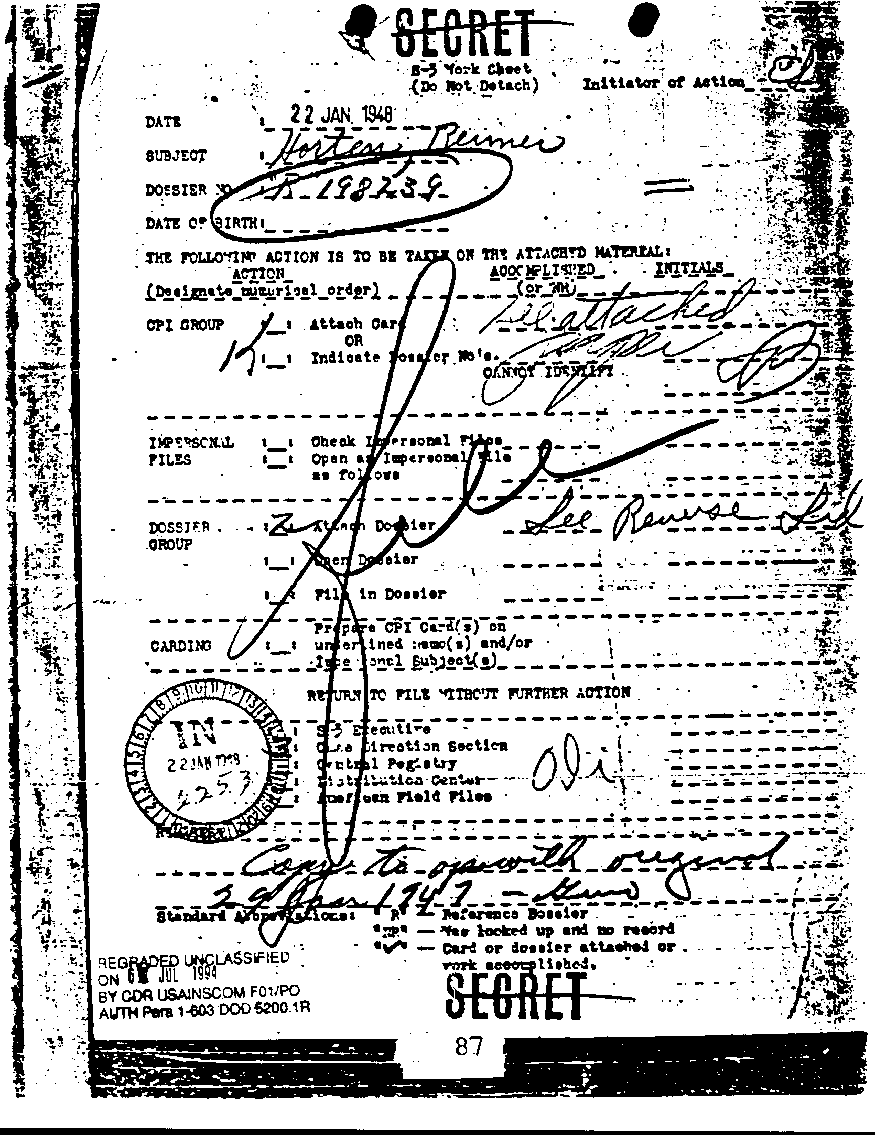 SECRET
S-3 Work Sheet
(Do Not Detach) Initiator of Action
DATE : 22 JAN. 1948
SUBJECT : Horten, Reimer
DOSSIER NO. : R-198239
DATE OF BIRTH:
THE FOLLOWING ACTION IS TO BE TAKEN ON THE ATTACHED MATERIAL:
ACTION ACCOMPLISHED INITIALS
(Designate numerical order) (or NR)
CPI GROUP : Attach Card See attached
OR
: Indicate Dossier No's.
CANNOT IDENTIFY
IMPERSONAL : : Check Impersonal Files
FILES : : Open as Impersonal File
as follows
DOSSIER : 2 : Attach Dossier See Reverse Sid
GROUP
: : Open Dossier
: : File in Dossier
Prepare CPI Card(s) on
CARDING : : underlined name(s) and/or
Subject(s)
RETURN TO FILE WITHOUT FURTHER ACTION
IN
22 JAN 1948
2253
: S-3 Executive
: Case Direction Section
: Central Registry
: Distribution Center
: American Field Files
Copy to ops with original
29 Jan 1947 -
Standard Abbreviations: "R" — Reference Dossier
"NR" — Was looked up and no record
"✓" — Card or dossier attached or
work accomplished.
REGRADED UNCLASSIFIED
ON JUL 1994
BY CDR USAINSCOM F01/PO
AUTH Para 1-603 DOD 5200.1R
SECRET
87